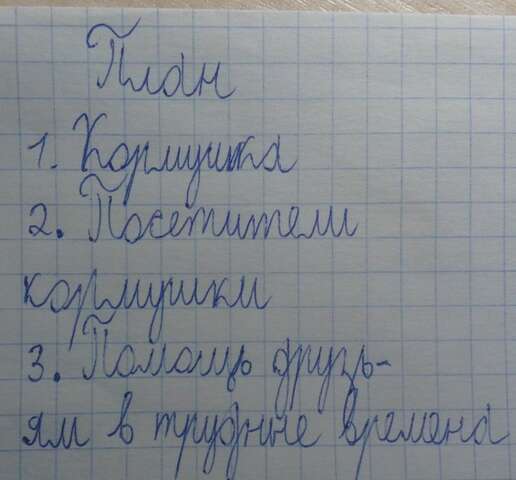 План
1. Кормушка
2. Посетители
кормушки
3. Помощь друзь-
ям в трудные времена